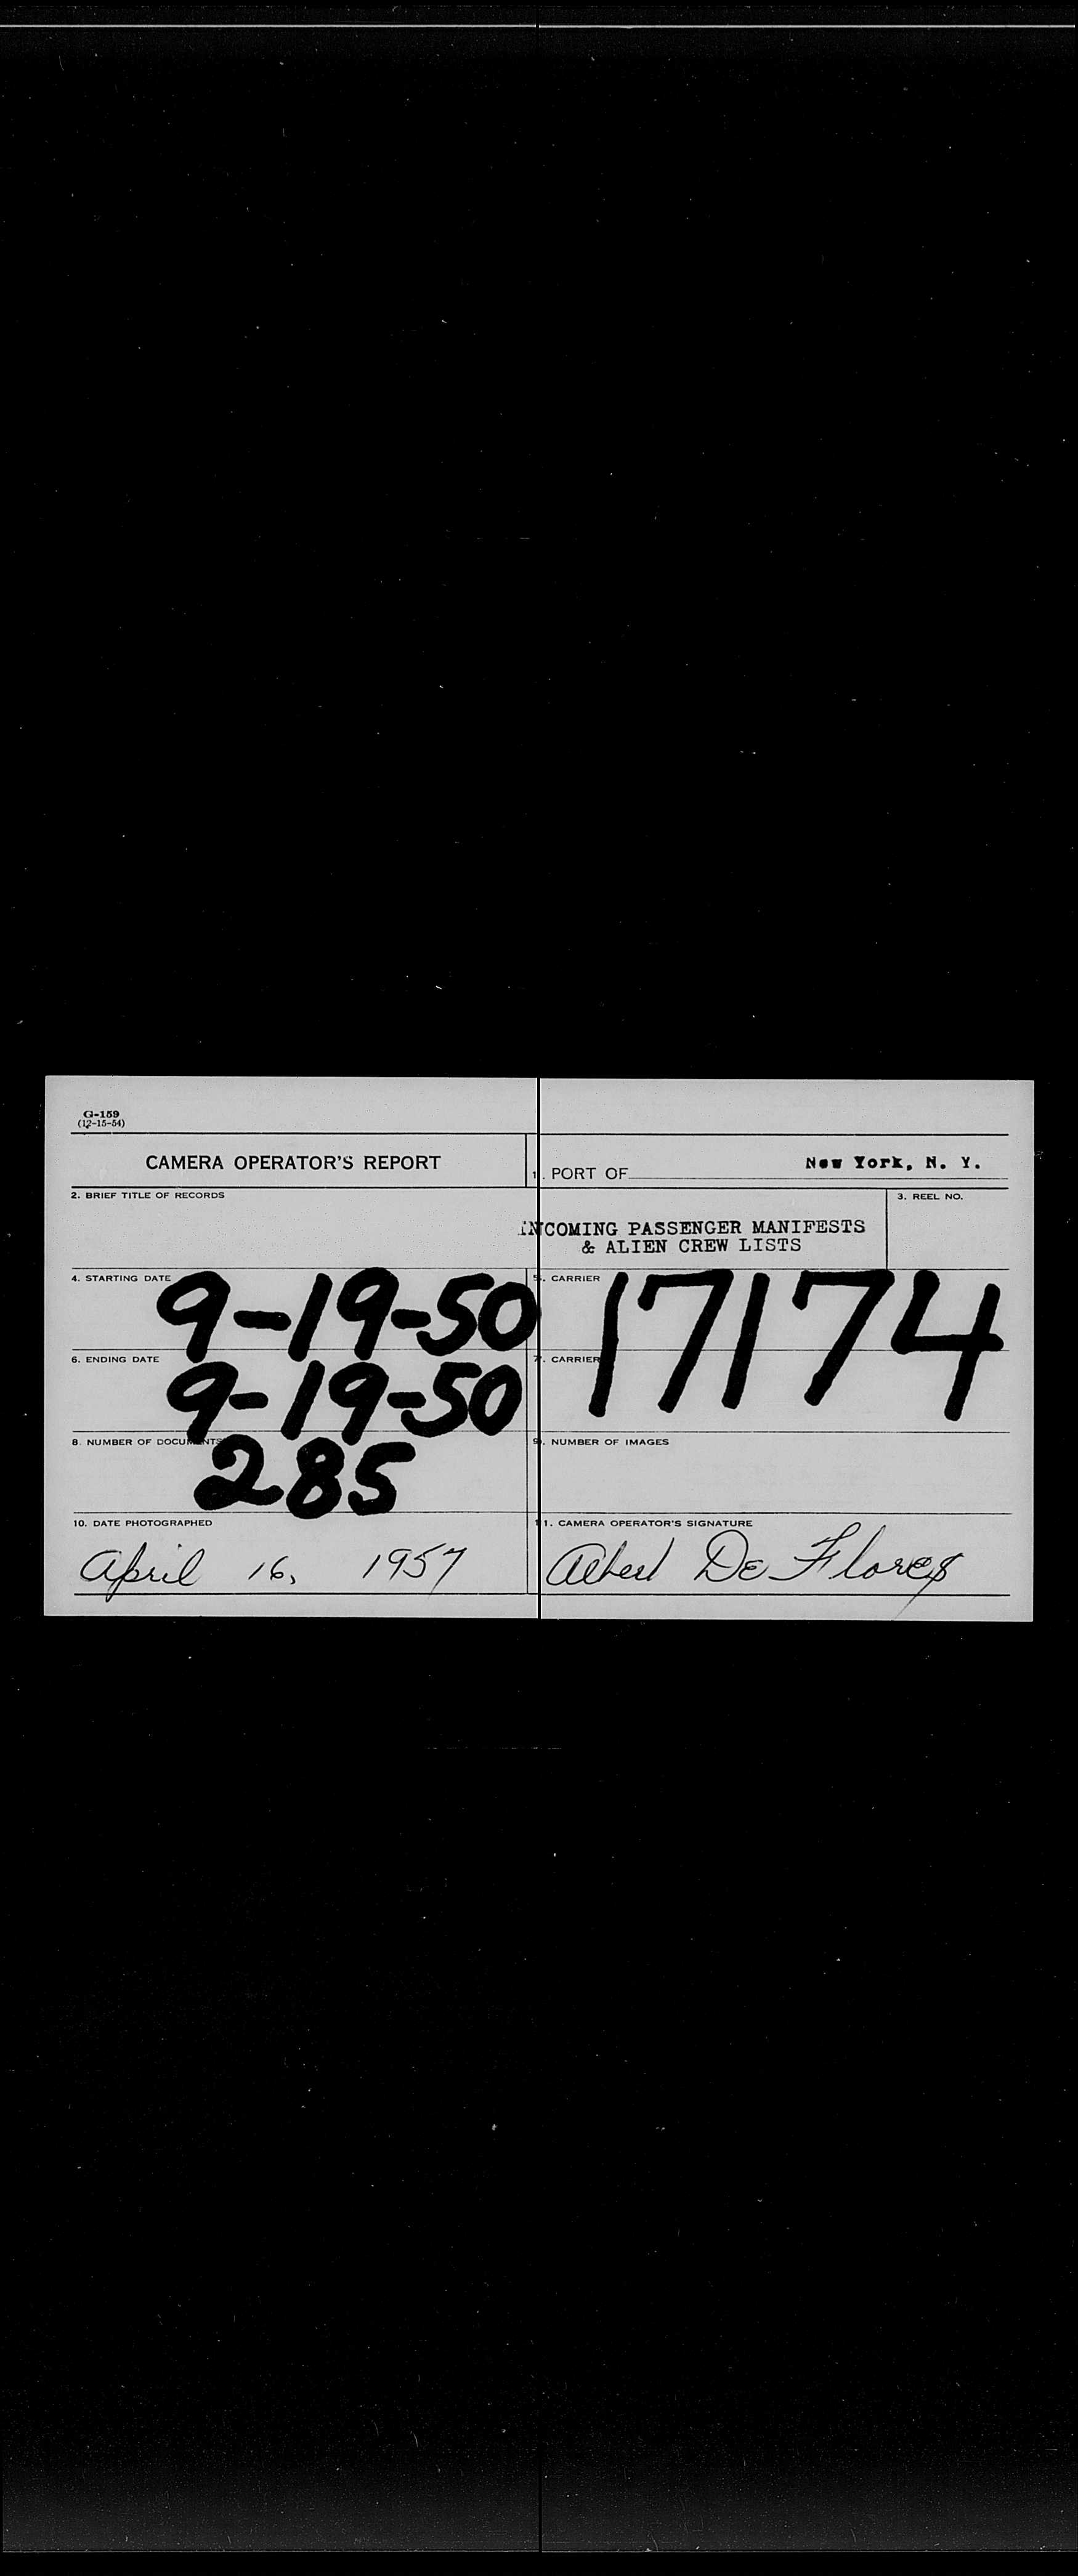 G-159
(12-15-54)
CAMERA OPERATOR'S REPORT
1. PORT OF New York, N. Y.
2. BRIEF TITLE OF RECORDS
INCOMING PASSENGER MANIFESTS
& ALIEN CREW LISTS
3. REEL NO.
4. STARTING DATE
9-19-50
5. CARRIER
17174
6. ENDING DATE
9-19-50
7. CARRIER
8. NUMBER OF DOCUMENTS
285
9. NUMBER OF IMAGES
10. DATE PHOTOGRAPHED
April 16, 1957
11. CAMERA OPERATOR'S SIGNATURE
Albert De Flores